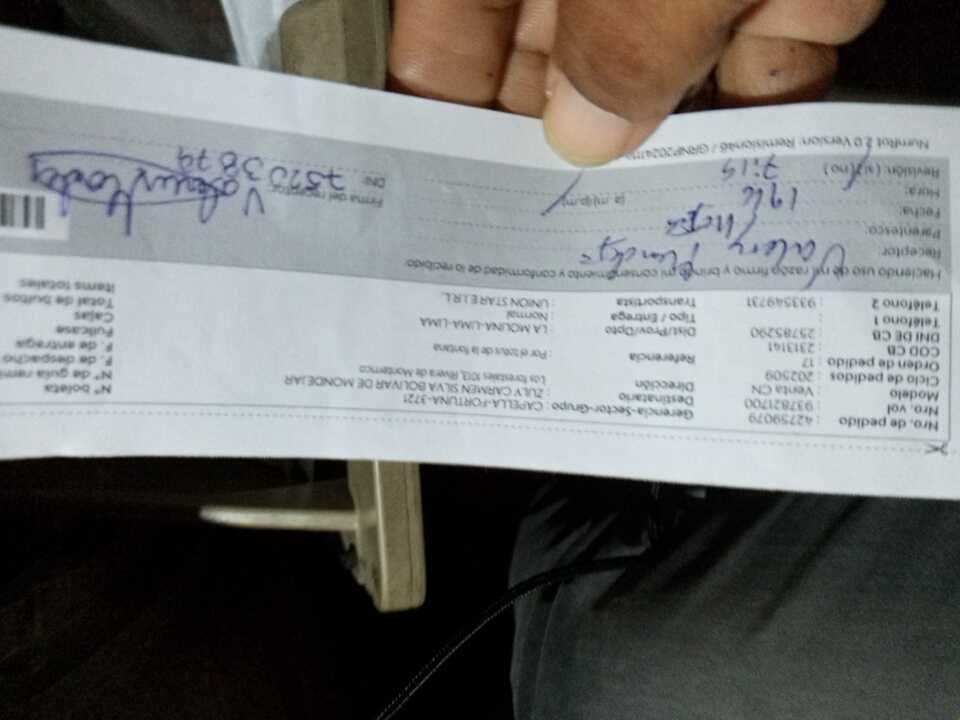 Nro. de pedido : 42759079 Gerencia-Sector-Grupo : CAPELLA-FORTUNA-3721 N° boleta
Nro. vol. : 937821700 Destinatario : ZULY CARMEN SILVA BOLIVAR DE MONDEJAR N° de guía remi
Modelo : Venta CN Dirección Los forestales 1013, Rivera de Monterrico F. de despacho
Ciclo de pedidos : 202509 F. de entrega
Orden de pedido : 17 Referencia : Por el totus de la fontana Fullcase
COD CB : 2313141 Dist/Prov/Dpto LA MOLINA-LIMA-LIMA Cajas
DNI DE CB : 25785290 Tipo / Entrega : Normal Total de bultos
Teléfono 1 : Transportista : UNION STAR E.I.R.L. Items totales
Teléfono 2 : 933549731
Haciendo uso de mi razón firmo y brindo mi consentimiento y conformidad de lo recibido:
Receptor: Valery
Parentesco: Hija
Fecha:
Hora: 7:15 (a.m)/(p.m) Firma del receptor
Revisión: (si) (no) DNI: 75203879
NumRot 2.0 Version: Remision46 /